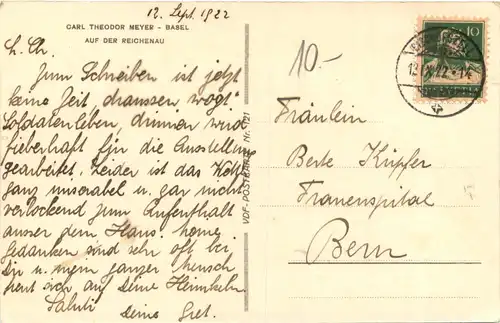 12. Sept. 1922
CARL THEODOR MEYER - BASEL
AUF DER REICHENAU
L. Ch.
Zum Schreiben ist jetzt
keine Zeit, draussen wogt
Soldatenleben, drinnen wird
fieberhaft für die Ausstellung
gearbeitet. Leider ist das
ganz miserabel u. gar nicht
verlockend zum Aufenthalt
ausser dem Haus. Meine
Gedanken sind sehr oft bei
Dir u. mein ganzer Mensch
freut sich auf Deine Heimkehr.
Saluti
deine Gret.
VDF-POSTKARTE Nr. 121
10.-
10
Fräulein
Berte Küpfer
Frauenspital
Bern